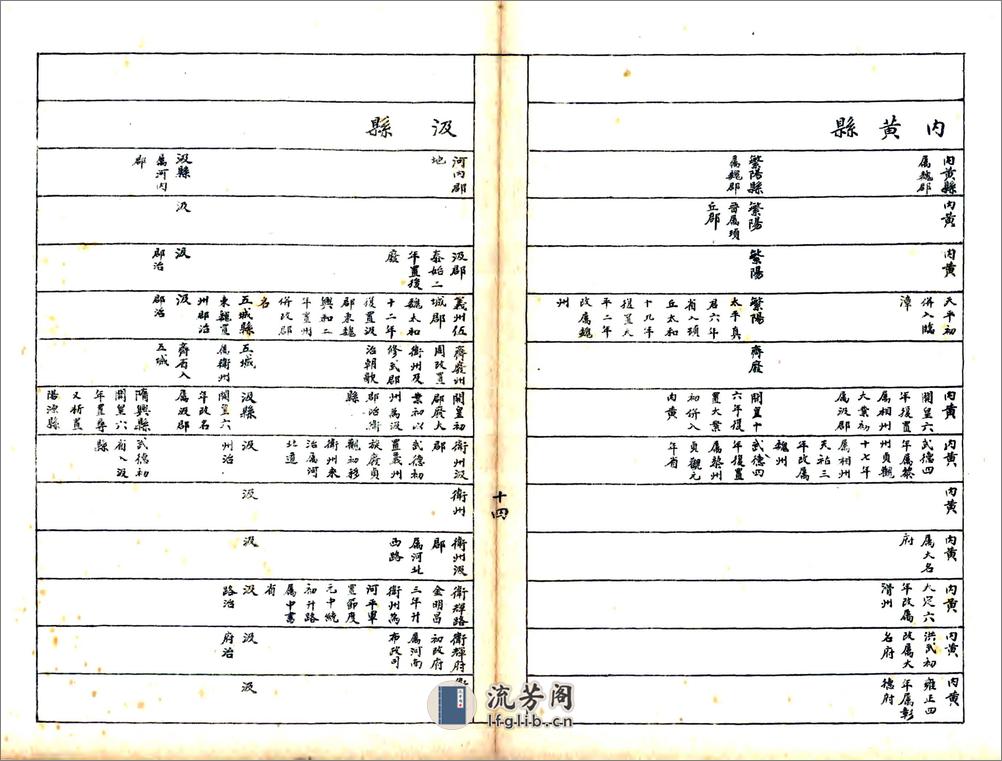 內黃縣
内黄縣
属魏郡
繁陽縣
属魏郡
内黄
繁陽
晉属頓
丘郡
内黄
繁陽
天平初
併入臨
漳
繁陽
太平真
君六年
省入頓
丘太和
十九年
復置天
平二年
改属魏
州
齊廢
内黄
開皇六
年復置
属相州
大業初
属汲郡
開皇十
六年復
置大業
初併入
内黄
内黄
武德四
年属黎
州貞觀
十七年
属相州
天祐三
年改属
魏州
武德四
年復置
属黎州
貞觀元
年省
内黄
内黄
属大名
府
内黄
大定六
年改属
滑州
内黄
洪武初
改属大
名府
内黄
雍正四
年属彰
德府
十四
汲縣
河内郡
地
汲縣
属河内
郡
汲
汲郡
泰始二
年置後
廢
汲
郡治
義州伍
城郡
魏太和
十二年
復置汲
郡東魏
興和二
年置州
併改郡
名
五城縣
東魏置
州郡治
汲
郡治
齊廢州
周改置
衛州及
修武郡
治朝歌
五城
属衛州
齊省入
五城
開皇初
郡廢大
業初以
州為汲
郡治衛
縣
汲縣
開皇六
年改名
属汲郡
隋興縣
開皇六
年置尋
又析置
陽源縣
衛州汲
郡
武德初
置義州
旋廢貞
觀初移
衛州來
治属河
北道
汲
州治
武德初
省入汲
縣
衛州
汲
衛州汲
郡
属河北
西路
汲
衛輝路
金明昌
三年升
衛州為
河平軍
置節度
元中統
初升路
属中書
省
汲
路治
衛輝府
初改府
属河南
布政司
汲
府治
汲
流芳阁
lfglib.cn